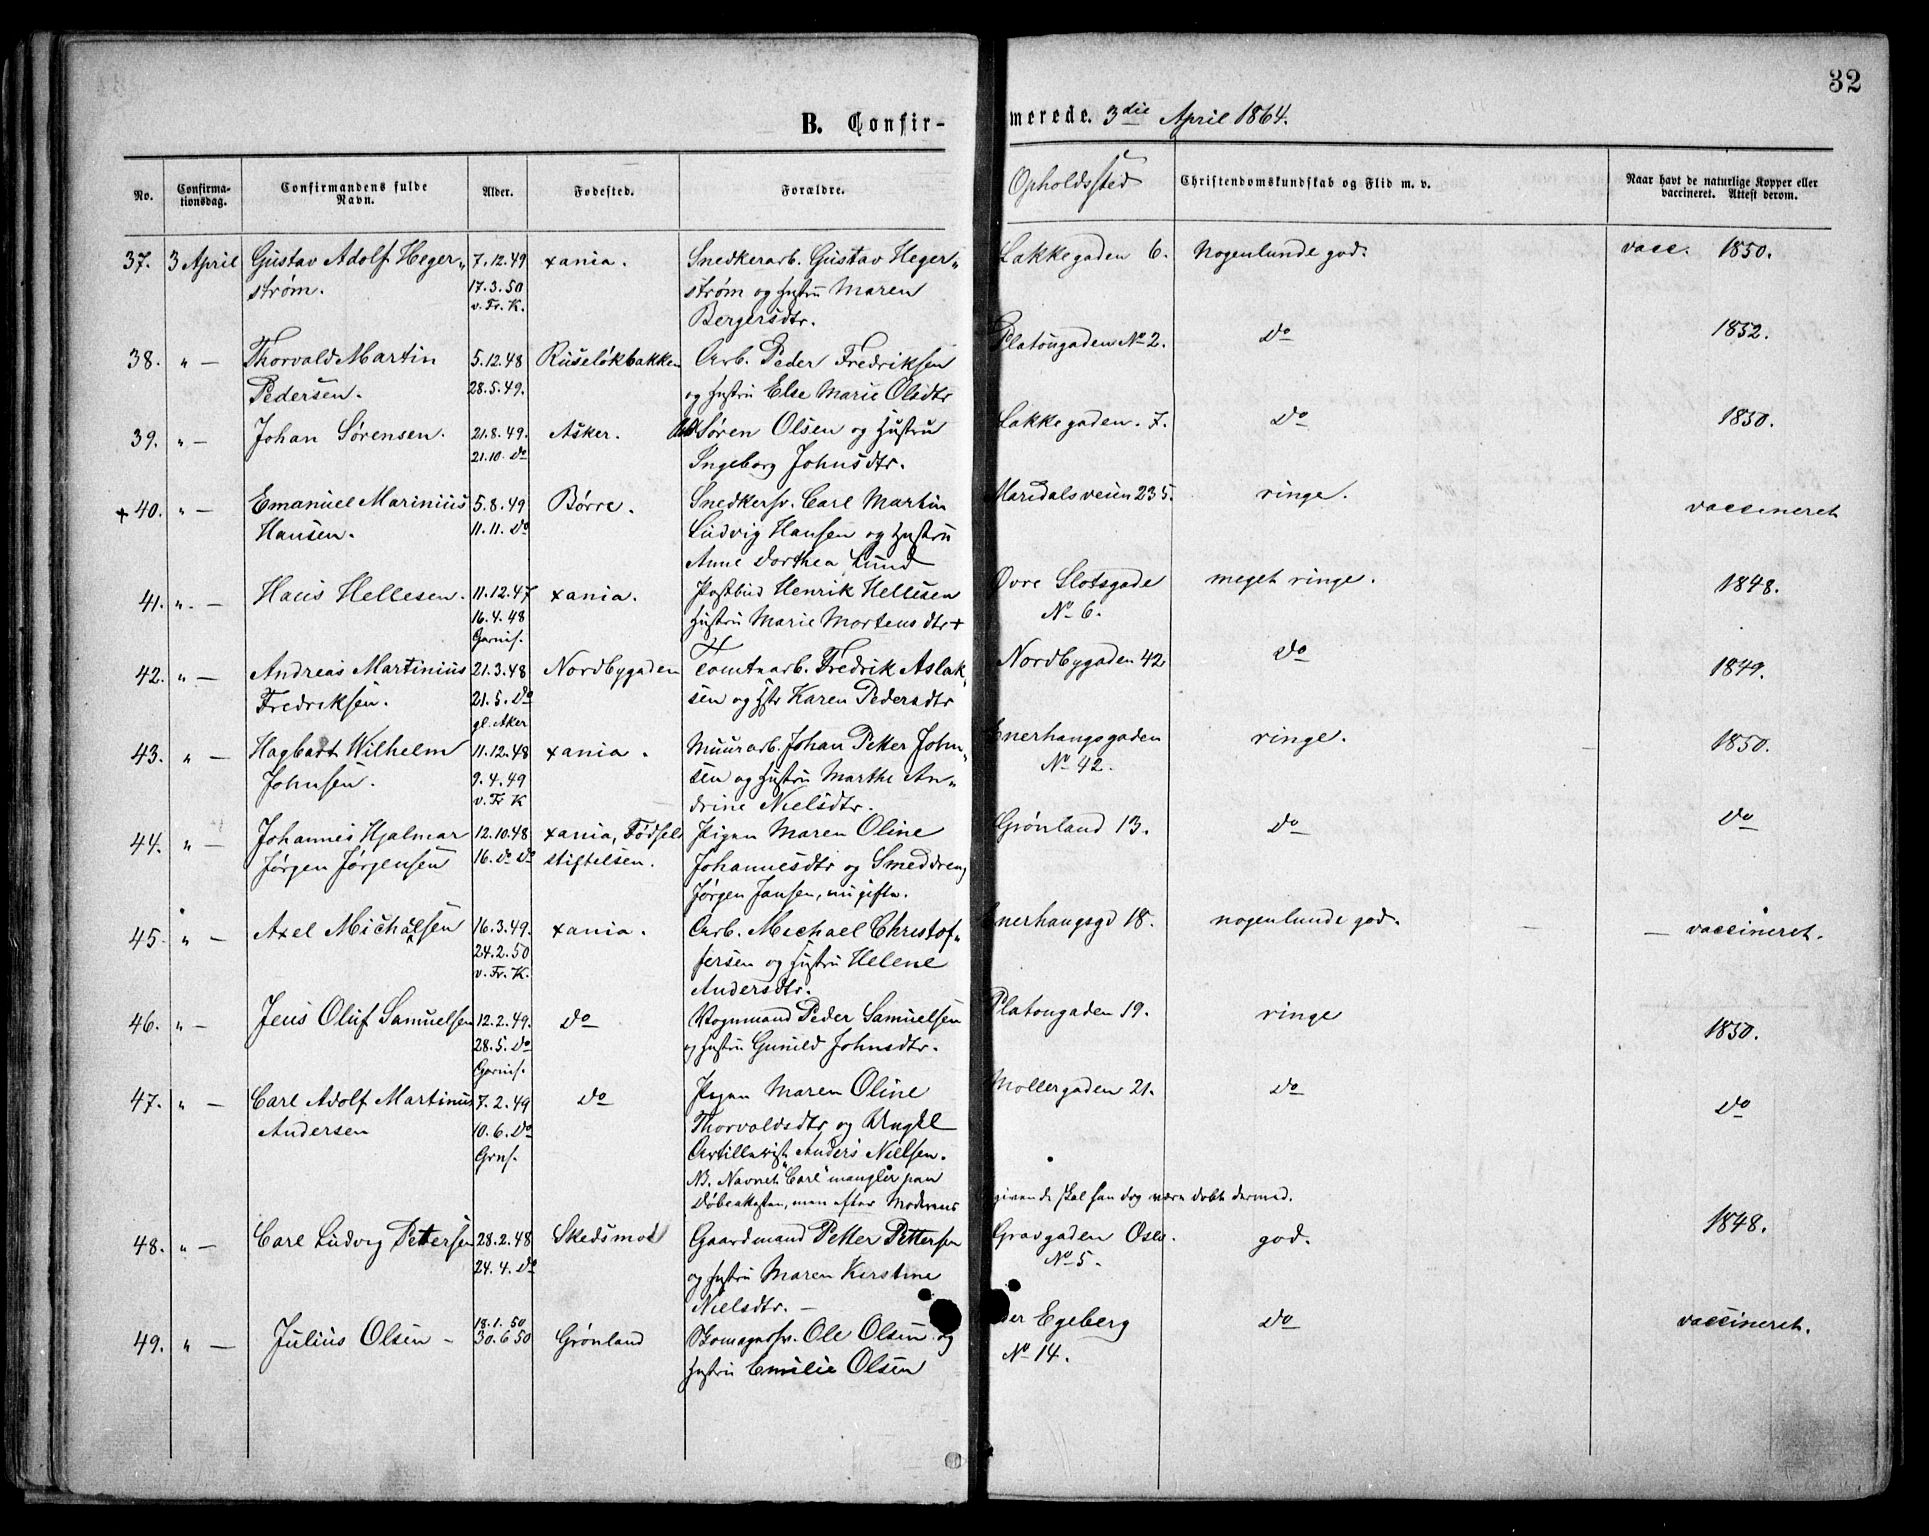 32
B. Confir-
merede. 3die April 1864.
No.
Confirma-
tionsdag.
Confirmandens fulde
Navn.
Alder.
Fødested.
Forældre.
Opholdssted
Christendomskundskab og Flid m. v.
Naar havt de naturlige Kopper eller
vaccineret. Attest derom.
37. 3 April Gustav Adolf Heger„ 7.12.49 xania. Snedkerarb. Gustav Heger„ Lakkegaden 6. Nogenlunde god. vacc. 1850.
strøm. 17.3.50 strøm og Hustru Maren
v. Fr. K. Bergersdtr.
38. „ — Thorvald Martin 5.12.48 Ruseløkbakken Arb. Peder Fredriksen Platougaden No 2. do 1852.
Pedersen. 28.5.49. og Hustru Else Marie Olsdtr
39. „ — Johan Sørensen. 21.8.49. Asker. Søren Olsen og Hustru Lakkegaden. 7. do 1850.
21.10. do Ingeborg Johnsdtr.
+ 40. „ — Emanuel Marinius 5.8.49 Børre. Snedkersv. Carl Martin Maridalsveien 235. ringe. vaccineret
Hansen. 11.11. do Ludvig Hansen og Hustru
Anne Dorthea Lund
41. „ — Hans Hellesen. 11.12.47 xania. Postbud Henrik Hellesen Øvre Slotsgade meget ringe. 1848.
16.4.48 Hustru Marie Mortensdtr + No 6.
Garnis.
42. „ — Andreas Martinius 21.3.48 Nordbygaden Tomtearb. Fredrik Aslak„ Nordbygaden 42 do 1849.
Fredriksen. 21.5. do sen og Hstr Karen Pedersdtr
gl. Aker
43. „ — Hagbart Wilhelm 11.12.48 xania. Muurarb. Johan Petter John„ Enerhaugsgaden ringe. 1850.
Johnsen. 9.4.49 sen og Hustru Marthe An„ No 42.
v. Fr K drine Nielsdtr.
44. „ — Johannes Hjalmar 12.10.48 xania, Fødsels Pigen Maren Oline Grønland 13. do do
Jørgen Jørgensen 16. do do stiftelsen. Johannesdtr og Smeddreng
Jørgen Jansen, ni gifte.
45. „ — Axel Michalsen 16.3.49. xania. Arb. Michael Christof„ Enerhaugsgd 18. nogenlunde god. — vaccineret.
24.2.50 fersen og Hustru Helene
v. Fr. K. Andersdtr.
46. „ — Jens Oluf Samuelsen 12.2.49. do Vognmand Peder Samuelsen Platougaden 19. ringe 1850.
28.5. do og Hustru Gunild Johnsdtr.
Garnis.
47. „ — Carl Adolf Martinus 7.2.49 do Pigen Maren Oline Møllergaden 21. do do
Andersen 10.6. do Thorvaldsdtr og Ungkl
Grns. Artillerist Anders Nielsen.
NB. Navnet "Carl" mangler paa
Døbeakten, men efter Moderens givende skal han dog være døbt dermed.
48. „ — Carl Ludvig Petersen 28.2.48 Skedsmo Gaardmand Petter Pettersen Gravgaden Oslo. god. 1848.
24.4. do og Hustru Maren Kirstine No 5.
Nielsdtr. —
49. „ — Julius Olsen — 18.1.50 Grønland Bomagersv. Ole Olsen og der Egeberg do vaccineret.
30.6 50 Hustru Emilie Olsen No 14.